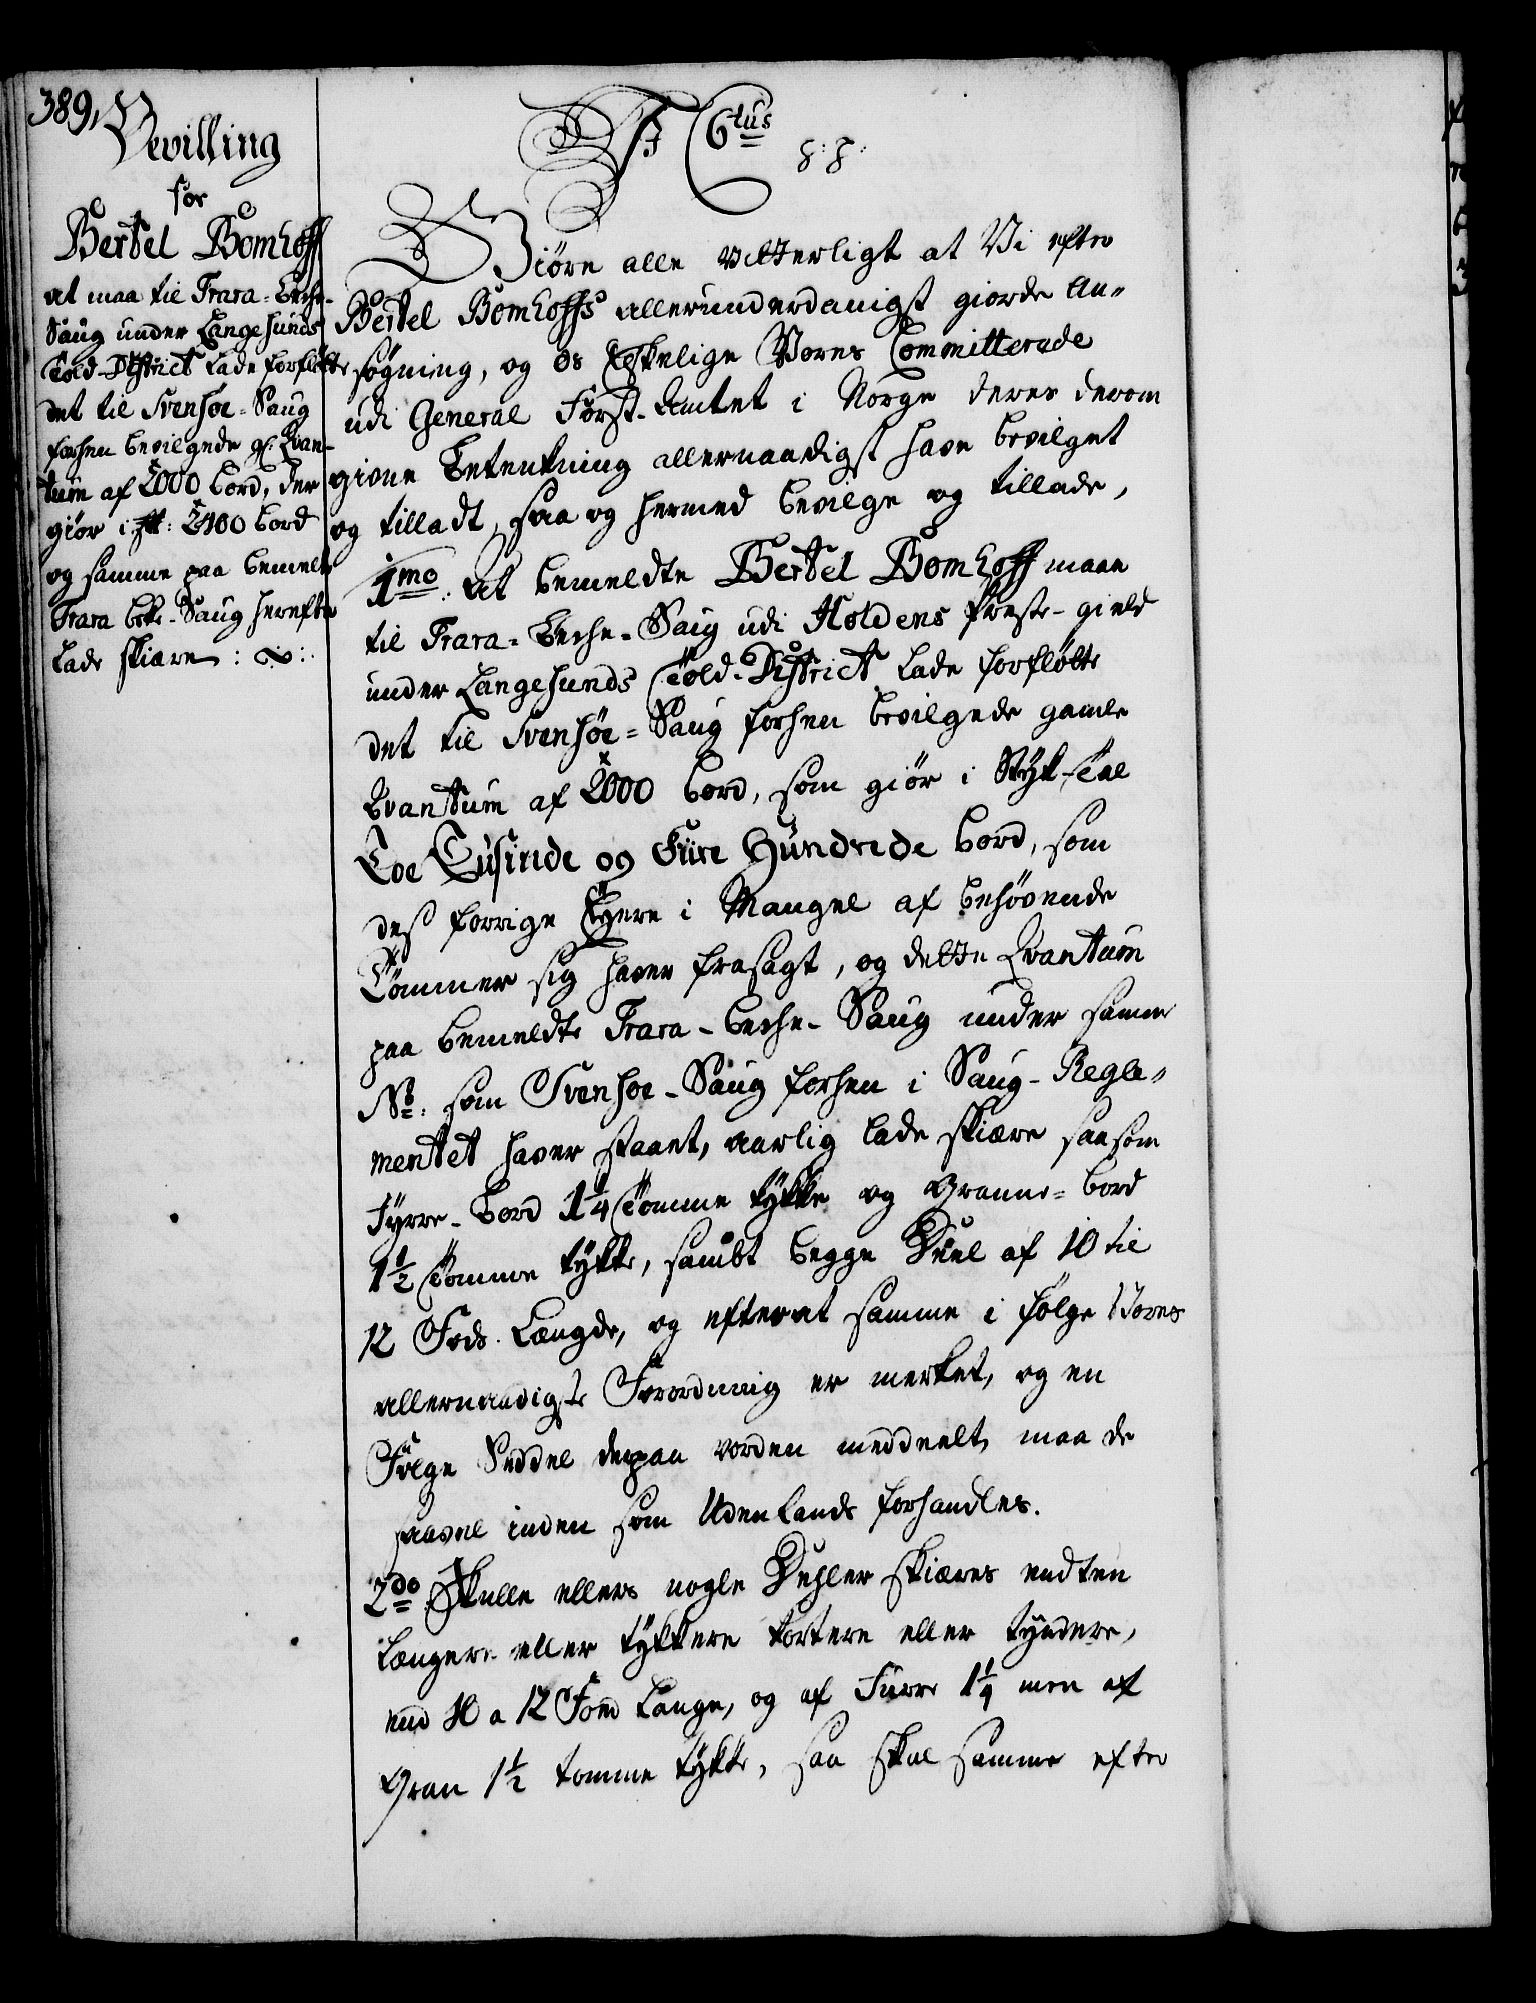 389,
Bevilling
for
Bertel Bomhoff
at maa til Trara-Beche-
Saug under Langesunds
Told-District lade forflötte
det til Svensøe-Saug
forhen bevilgede gl: Qvan-
tum af 2000 bord, der
giör i St: 2400 bord
og samme paa bemelte
Trara Beke-Saug herefter
lade skiære :
F 6tus
p: p:
Giöre alle vitterligt at Vi efter
Bertel Bomhoffs allerunderdanigst giorde An-
søgning, og Os Elskelige Vores Committerede
udi General Forst-Amtet i Norge deres derom
givne Betenkning allernaadigst have bevilget
og tilladt, saa og hermed bevilge og tillade,
1mo: At bemeldte Bertel Bomhoff maae
til Trara-Beche-Saug udi Holdens Preste-gield
under Langesunds Told-District lade forflötte
det til Svensøe-Saug forhen bevilgede gamle
Qvantum af 2000 bord, som giör i Styk-tal
Toe Tusinde og Fiire Hundrede bord, som
des forrige Eyere i Mangel af behövende
Tömmer sig haver frasagt, og dette Qvantum
paa bemeldte Trara-beche-Saug under samme
No: som Svensoe-Saug forhen i Saug-Regle-
mentet haver staaet, aarlig lade skiære saasom
Fyrre-bord 1 1/4 Tomme tykke og Granne-bord
1 1/2 Tomme tykke, sambt begge Deel af 10 til
12 Fods Længde, og efterat samme i fölge Vores
allernaadigste Forordning er merket, og en
Fölge Seddel derpaa vorden meddeelt, maa de
saavel inden som Udenlands forhandles.
2do Skulle ellers nogle Dehler skiæres endten
længere eller tykkere kortere eller tyndere,
end 10 a 12 Foed lange, og af Fürre 1 1/4 men af
Gran 1 1/2 tomme tykke, saa skal samme efter